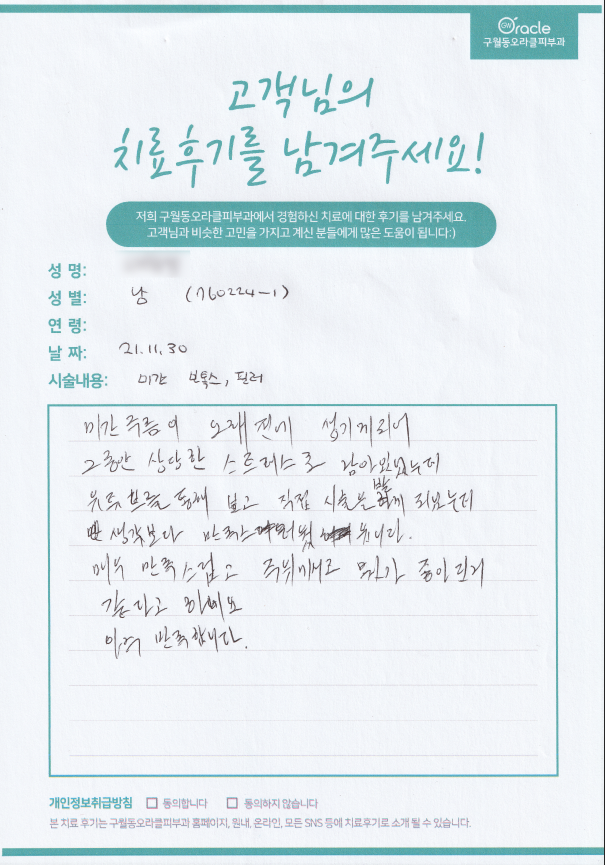 GW Oracle
구월동오라클피부과
고객님의
치료후기를 남겨주세요!
저희 구월동오라클피부과에서 경험하신 치료에 대한 후기를 남겨주세요.
고객님과 비슷한 고민을 가지고 계신 분들에게 많은 도움이 됩니다:)
성 명:
성 별: 남 (760224-1)
연 령:
날 짜: 21.11.30
시술내용: 미간 보톡스, 필러
미간주름이 오래전에 생기게되어
그동안 상당한 스트레스로 남아있었는데
통해 보고 직접 시술을 받게 되었는데
생각보다
매우 만족스럽고 주위에서도 뭐가 좋아진거
같다고 하네요
만족합니다.
개인정보취급방침 동의합니다 동의하지 않습니다
본 치료 후기는 구월동오라클피부과 홈페이지, 원내, 온라인, 모든 SNS 등에 치료후기로 소개 될 수 있습니다.